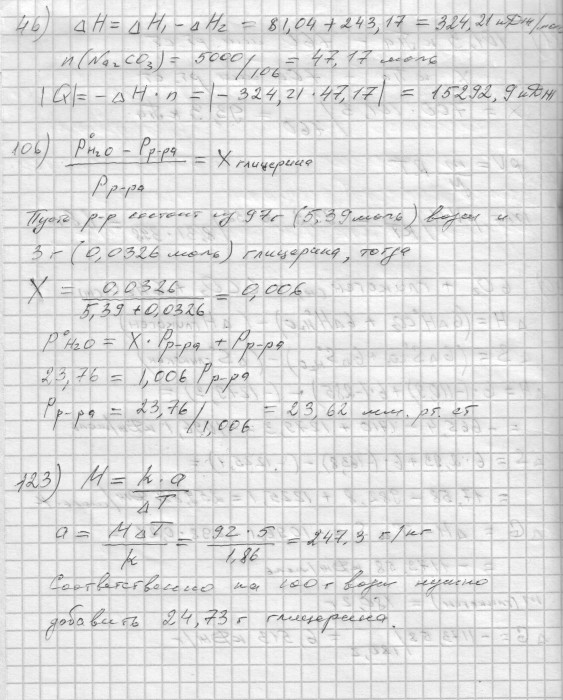 46) ΔH = ΔH₁ - ΔH₂ = 81,04 + 243,17 = 324,21 кДж/моль
n(Na₂CO₃) = 5000/106 = 47,17 моль
|Q| = -ΔH · n = |-324,21 · 47,17| = 15292,9 кДж
106) (P°H₂O - Pр-ра)/Pр-ра = X глицерина
Пусть р-р состоит из 97 г (5,39 моль) воды и
3 г (0,0326 моль) глицерина, тогда
X = 0,0326/(5,39 + 0,0326) = 0,006
P°H₂O = X · Pр-ра + Pр-ра
23,76 = 1,006 Pр-ра
Pр-ра = 23,76/1,006 = 23,62 мм. рт. ст
123) M = k · a/ΔT
a = MΔT/k = 92 · 5/1,86 = 247,3 г/кг
Соответственно на 100 г воды нужно
добавить 24,73 г глицерина.